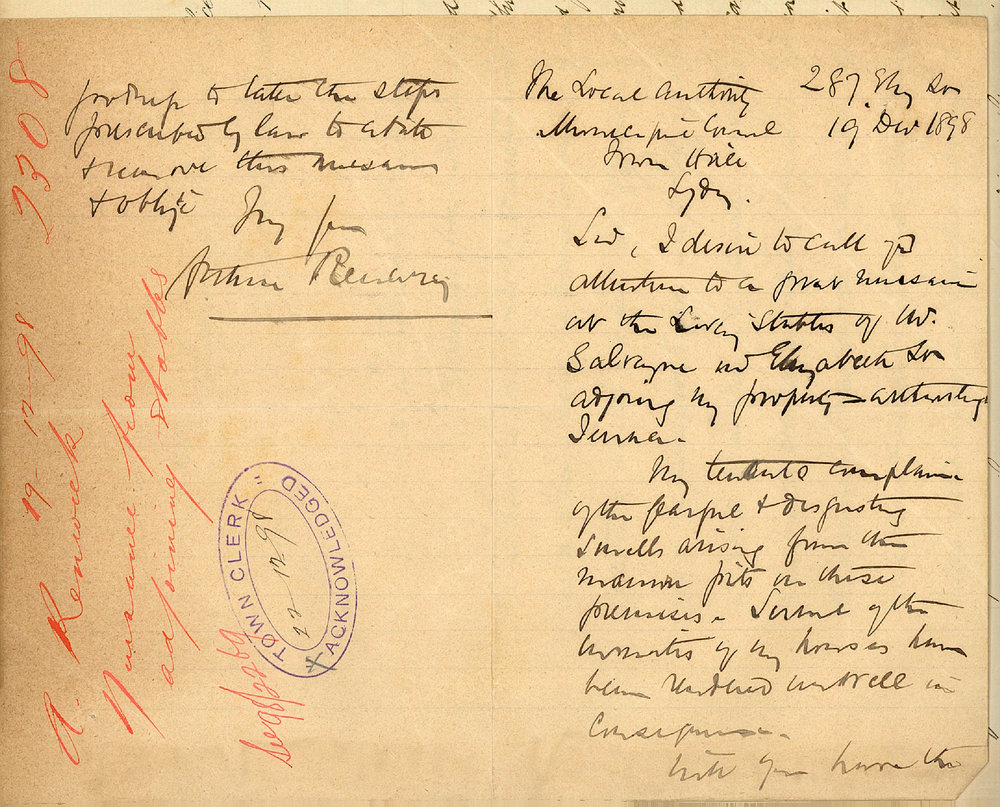 287 Eliz St
The Local Authority
19 Dec 1898
Municipal Council
Town Hall
Sydy.
Sir, I desire to call yr
attention to a great nuisance
at the Livery Stables of Mr.
Salvagne in Elizabeth St
adjoing my property
My tenants complain
of the fearful & disgusting
smells arising from the
manure pits in these
premises. Several of the
inmates of my houses have
been rendered unwell in
consequence.
Will you have the
goodness to take the steps
prescribed by law to abate
& remove this nuisance
& oblige
Arthur Renwick
2308
A. Renwick 19-12-98
Nuisance from
adjoining stables
TOWN CLERK
22-12-98
ACKNOWLEDGED